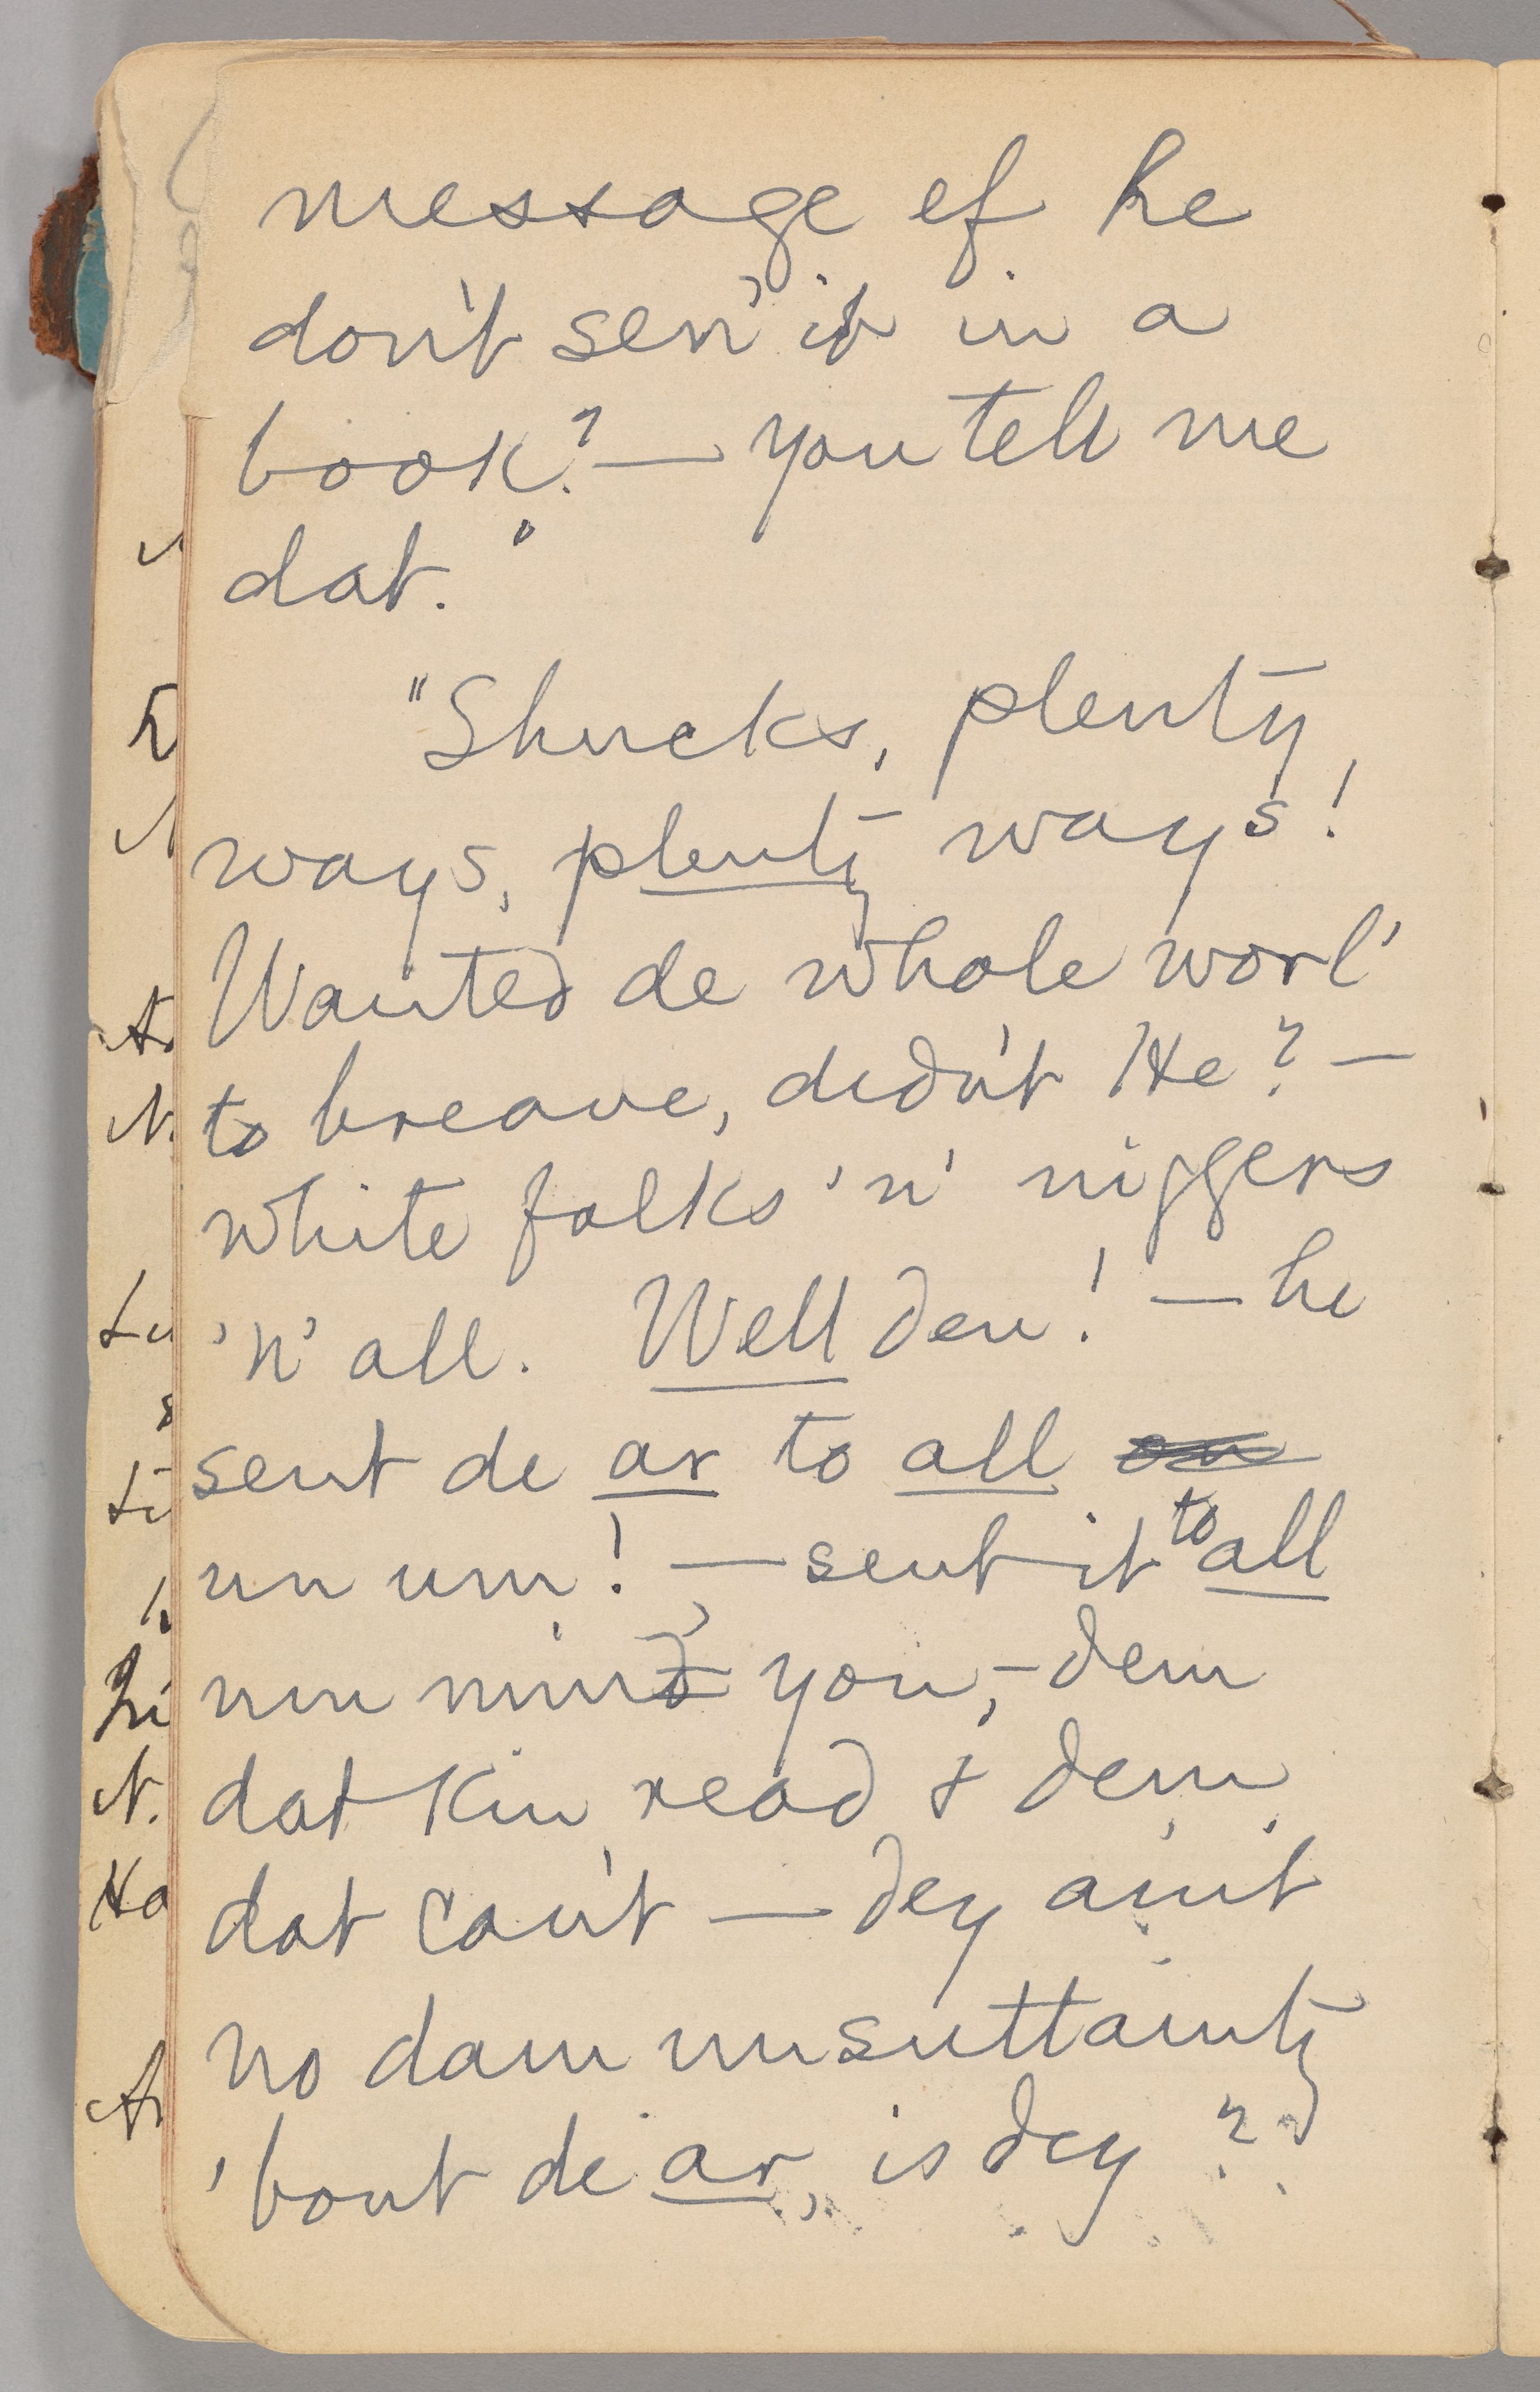 message ef he
don't sen' it in a
book? — you tell me
dat."
"Shucks, plenty
ways, plenty ways!
Wanted de whole worl'
to breave, didn't He? —
white folks 'n' niggers
'n' all. Well den! — he
sent de ar to all on
un um! — sent it to all
um mind' you, — dem
dat kin read & dem
dat can't — dey ain't
no dam unsuttainty
'bout de ar, is dey?